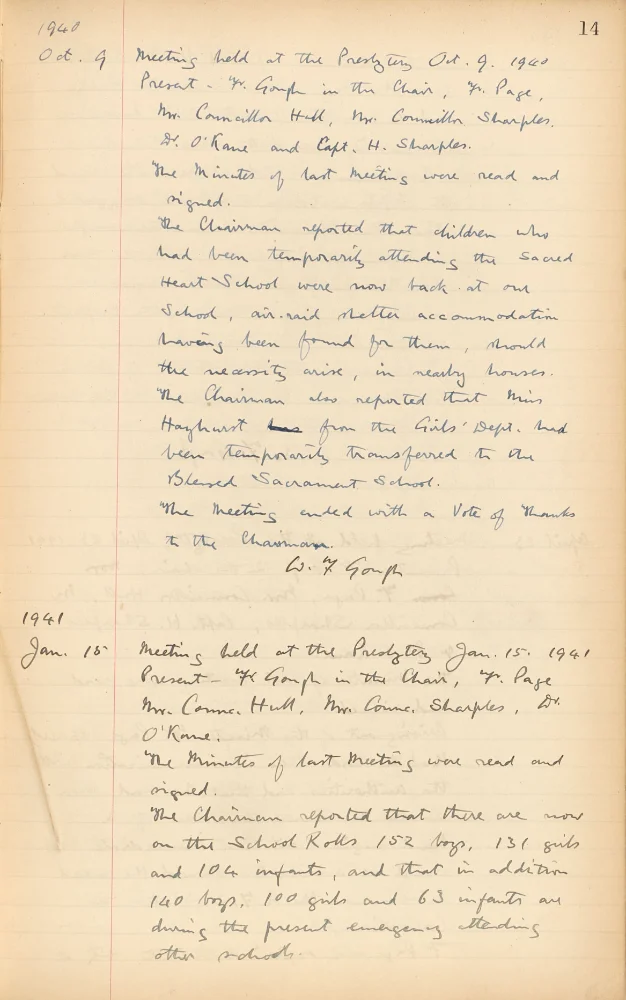 14
1940
Oct. 9 Meeting held at the Presbytery Oct. 9. 1940
Present - Fr. Gough in the Chair, Fr. Page,
Mr. Councillor Hull, Mr. Councillor Sharples.
Dr. O'Kane and Capt. H. Sharples.
The Minutes of last Meeting were read and
signed.
The Chairman reported that children who
had been temporarily attending the Sacred
Heart School were now back at our
School, air-raid shelter accommodation
having been found for them, should
the necessity arise, in nearby houses.
The Chairman also reported that Miss
Hayhurst has from the Girls' Dept. had
been temporarily transferred to the
Blessed Sacrament School.
The Meeting ended with a Vote of Thanks
to the Chairman.
W. F. Gough
1941
Jan. 15 Meeting held at the Presbytery Jan. 15. 1941
Present - Fr Gough in the Chair, Fr. Page
Mr. Counc. Hull, Mr. Counc. Sharples, Dr.
O'Kane.
The Minutes of last Meeting were read and
signed.
The Chairman reported that there are now
on the School Rolls 152 boys, 131 girls
and 104 infants, and that in addition
140 boys, 100 girls and 63 infants are
during the present emergency attending
other schools.